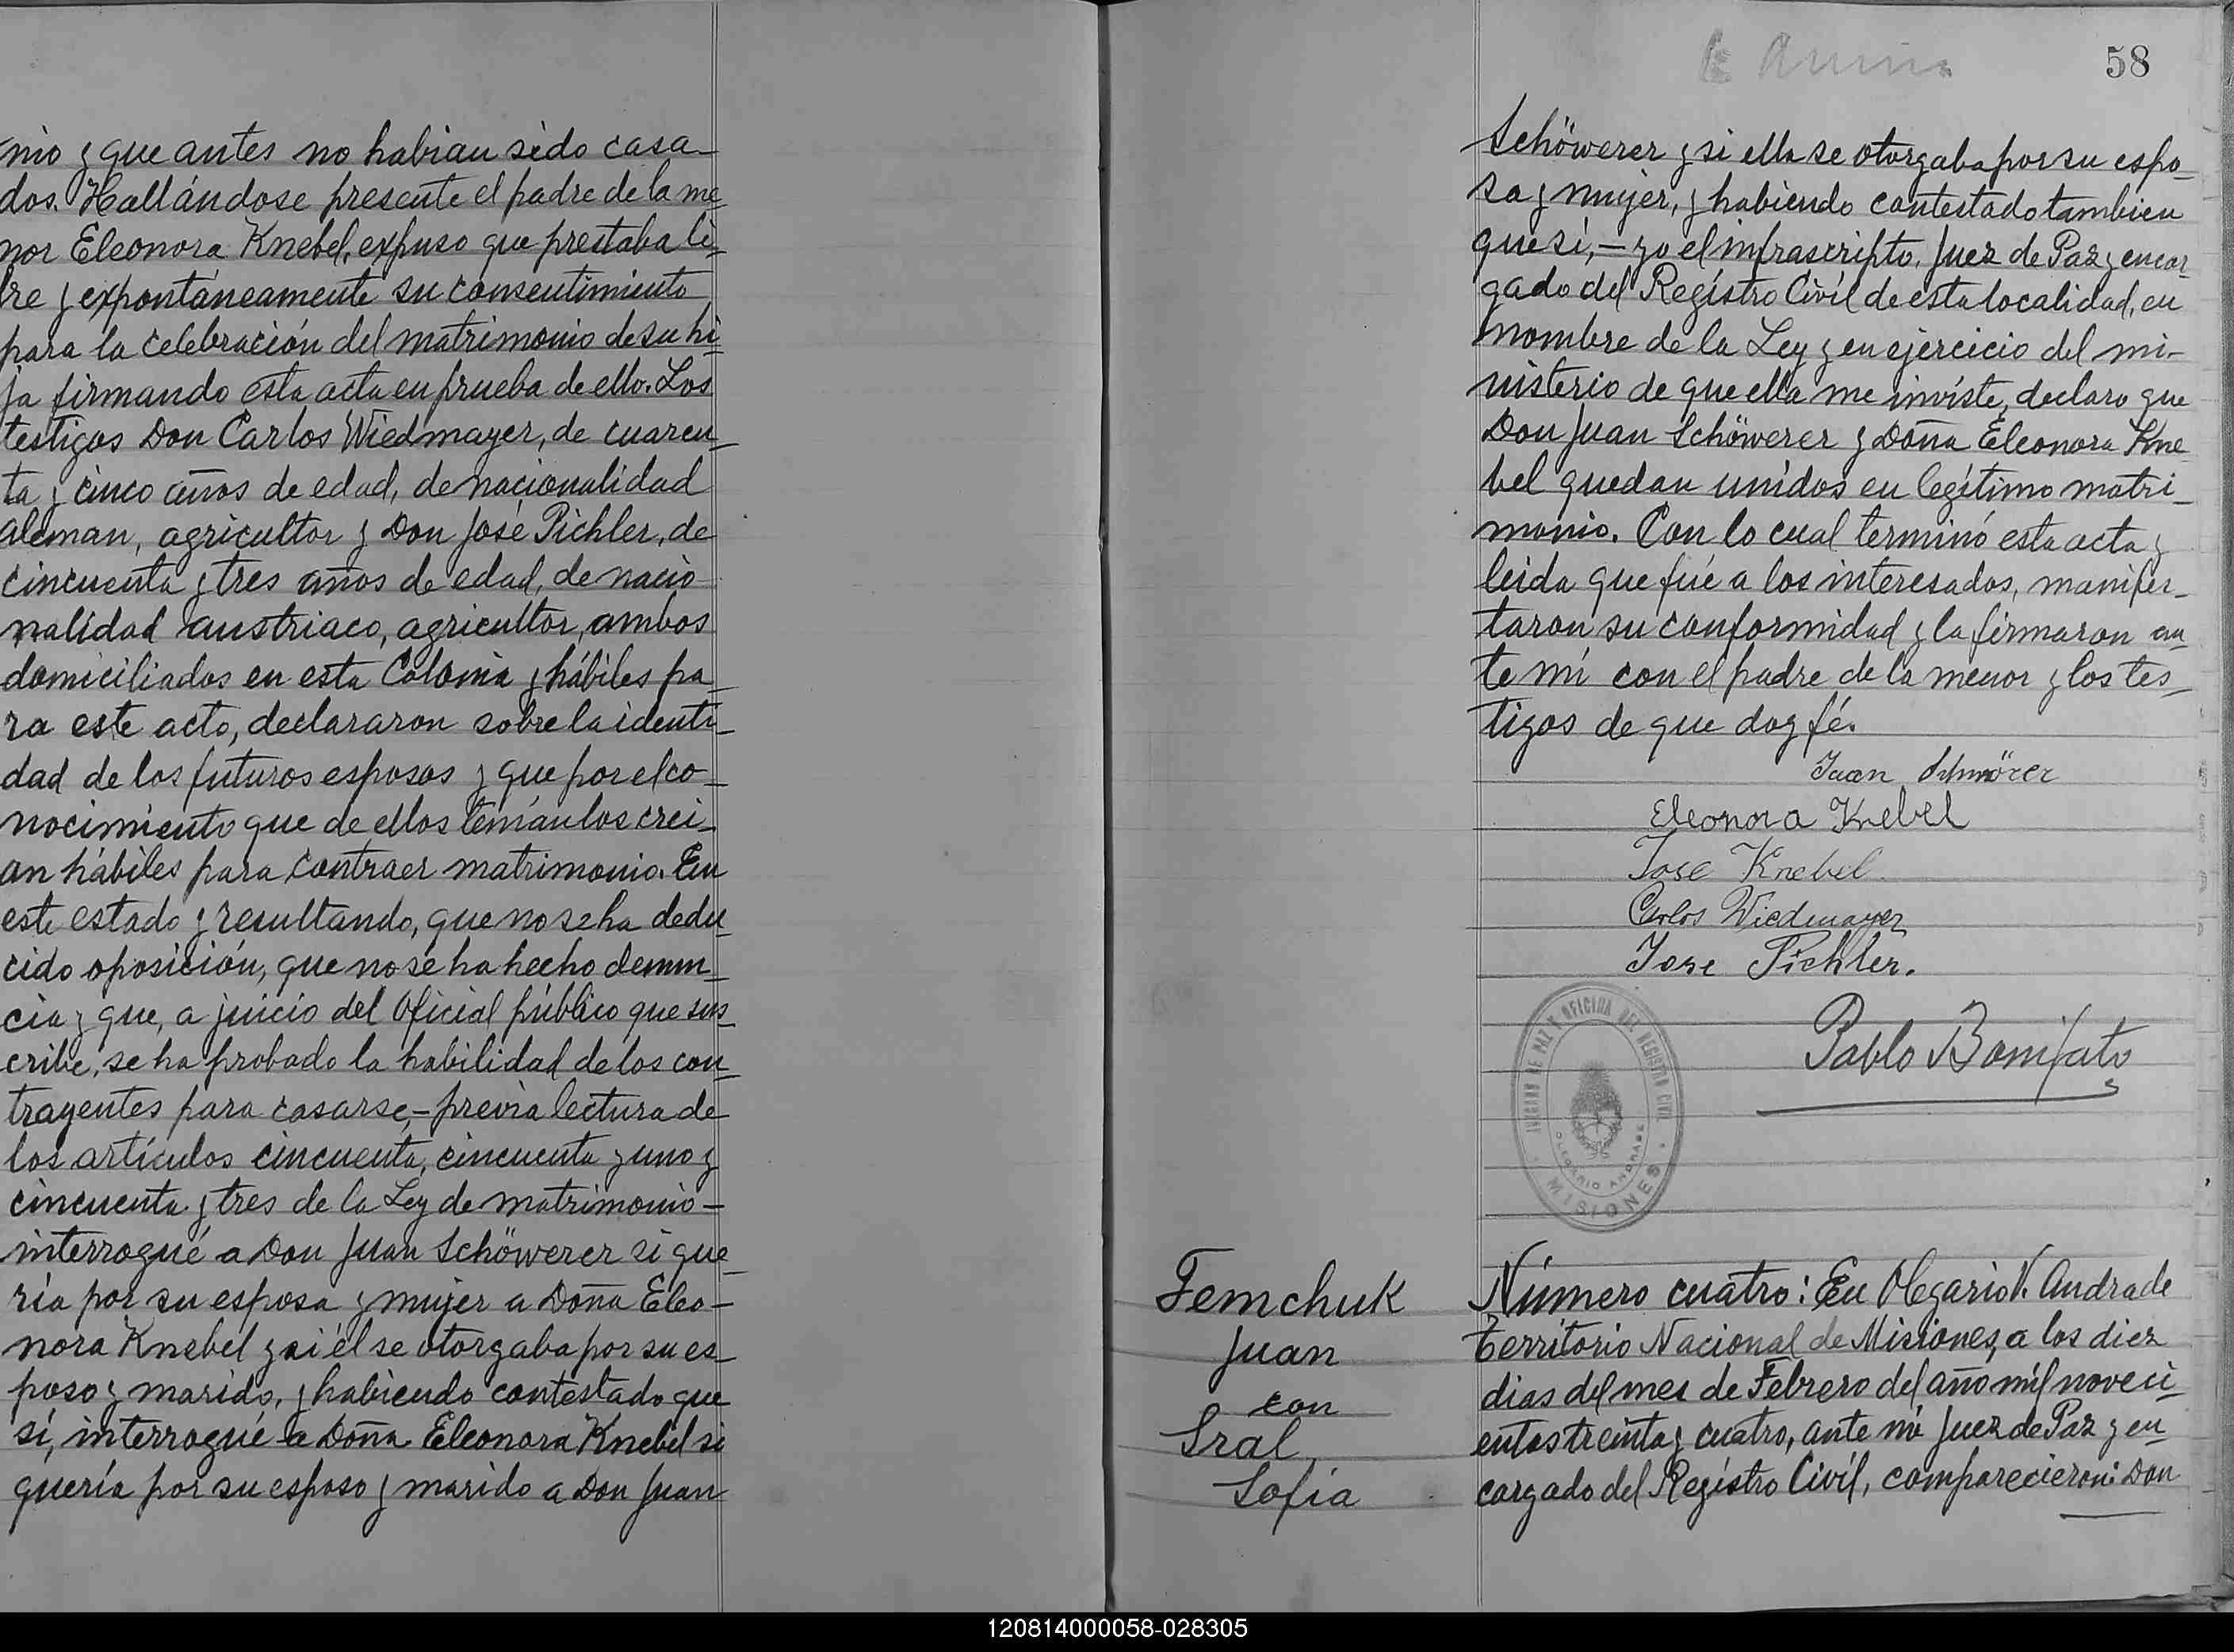 nio y que antes no habian sido casa-
dos. Hallándose presente el padre de la me-
nor Eleonora Knebel, expuso que prestaba li-
re y expontáneamente su consentimiento
para la celebración del matrimonio de su hi-
ja firmando esta acta en prueba de ello. Los
testigos Don Carlos Wiedmayer, de cuaren-
ta y cinco años de edad, de nacionalidad
aleman, agricultor y Don José Pichler, de
cincuenta y tres años de edad, de nacio
nalidad austriaco, agricultor, ambos
domiciliados en esta Colonia y hábiles pa-
ra este acto, declararon sobre la identi-
dad de los futuros esposos y que por el co-
nocimiento que de ellos tenían los crei-
an hábiles para contraer matrimonio. En
este estado y resultando, que no se ha dedu-
cido oposición, que no se ha hecho denun-
cia y que, a juicio del Oficial público que sus-
cribe, se ha probado la habilidad de los con-
trayentes para casarse,- previa lectura de
los artículos cincuenta, cincuenta y uno y
cincuenta y tres de la Ley de matrimonio-
interrogué a Don Juan Schöwerer si que-
ría por su esposa y mujer a Doña Eleo-
nora Knebel y si él se otorgaba por su es-
poso y marido, y habiendo contestado que
sí, interrogué a Doña Eleonora Knebel si
quería por su esposo y marido a Don Juan
58
Schöwerer y si ella se otorgaba por su espo-
sa y mujer, y habiendo contestado tambien
que sí,- yo el infrascripto, Juez de Paz y encar-
gado del Registro Civil de esta localidad, en
nombre de la Ley y en ejercicio del mi-
nisterio de que ella me inviste, declaro que
Don Juan Schöwerer y Doña Eleonora Kne
bel quedan unidos en legítimo matri-
monio. Con lo cual terminó esta acta y
leida que fué a los interesados, manifes-
taron su conformidad y la firmaron an-
te mí con el padre de la menor y los tes-
tigos de que doy fé.
Juan Schmörer
Eleonora Knebel
Jose Knebel
Carlos Wiedmayer
Jose Pichler.
Pablo Bonifato
JUZGADO DE PAZ Y OFICINA DEL REGISTRO CIVIL
OLEGARIO ANDRADE
MISIONES
Femchuk
Juan
con
Sral
Sofía
Número cuatro: En Olegario V. Andrade
Territorio Nacional de Misiones, a los diez
dias del mes de Febrero del año mil noveci-
entos treinta y cuatro, ante mí Juez de Paz y en-
cargado del Registro Civil, comparecieron: Don
120814000058-028305